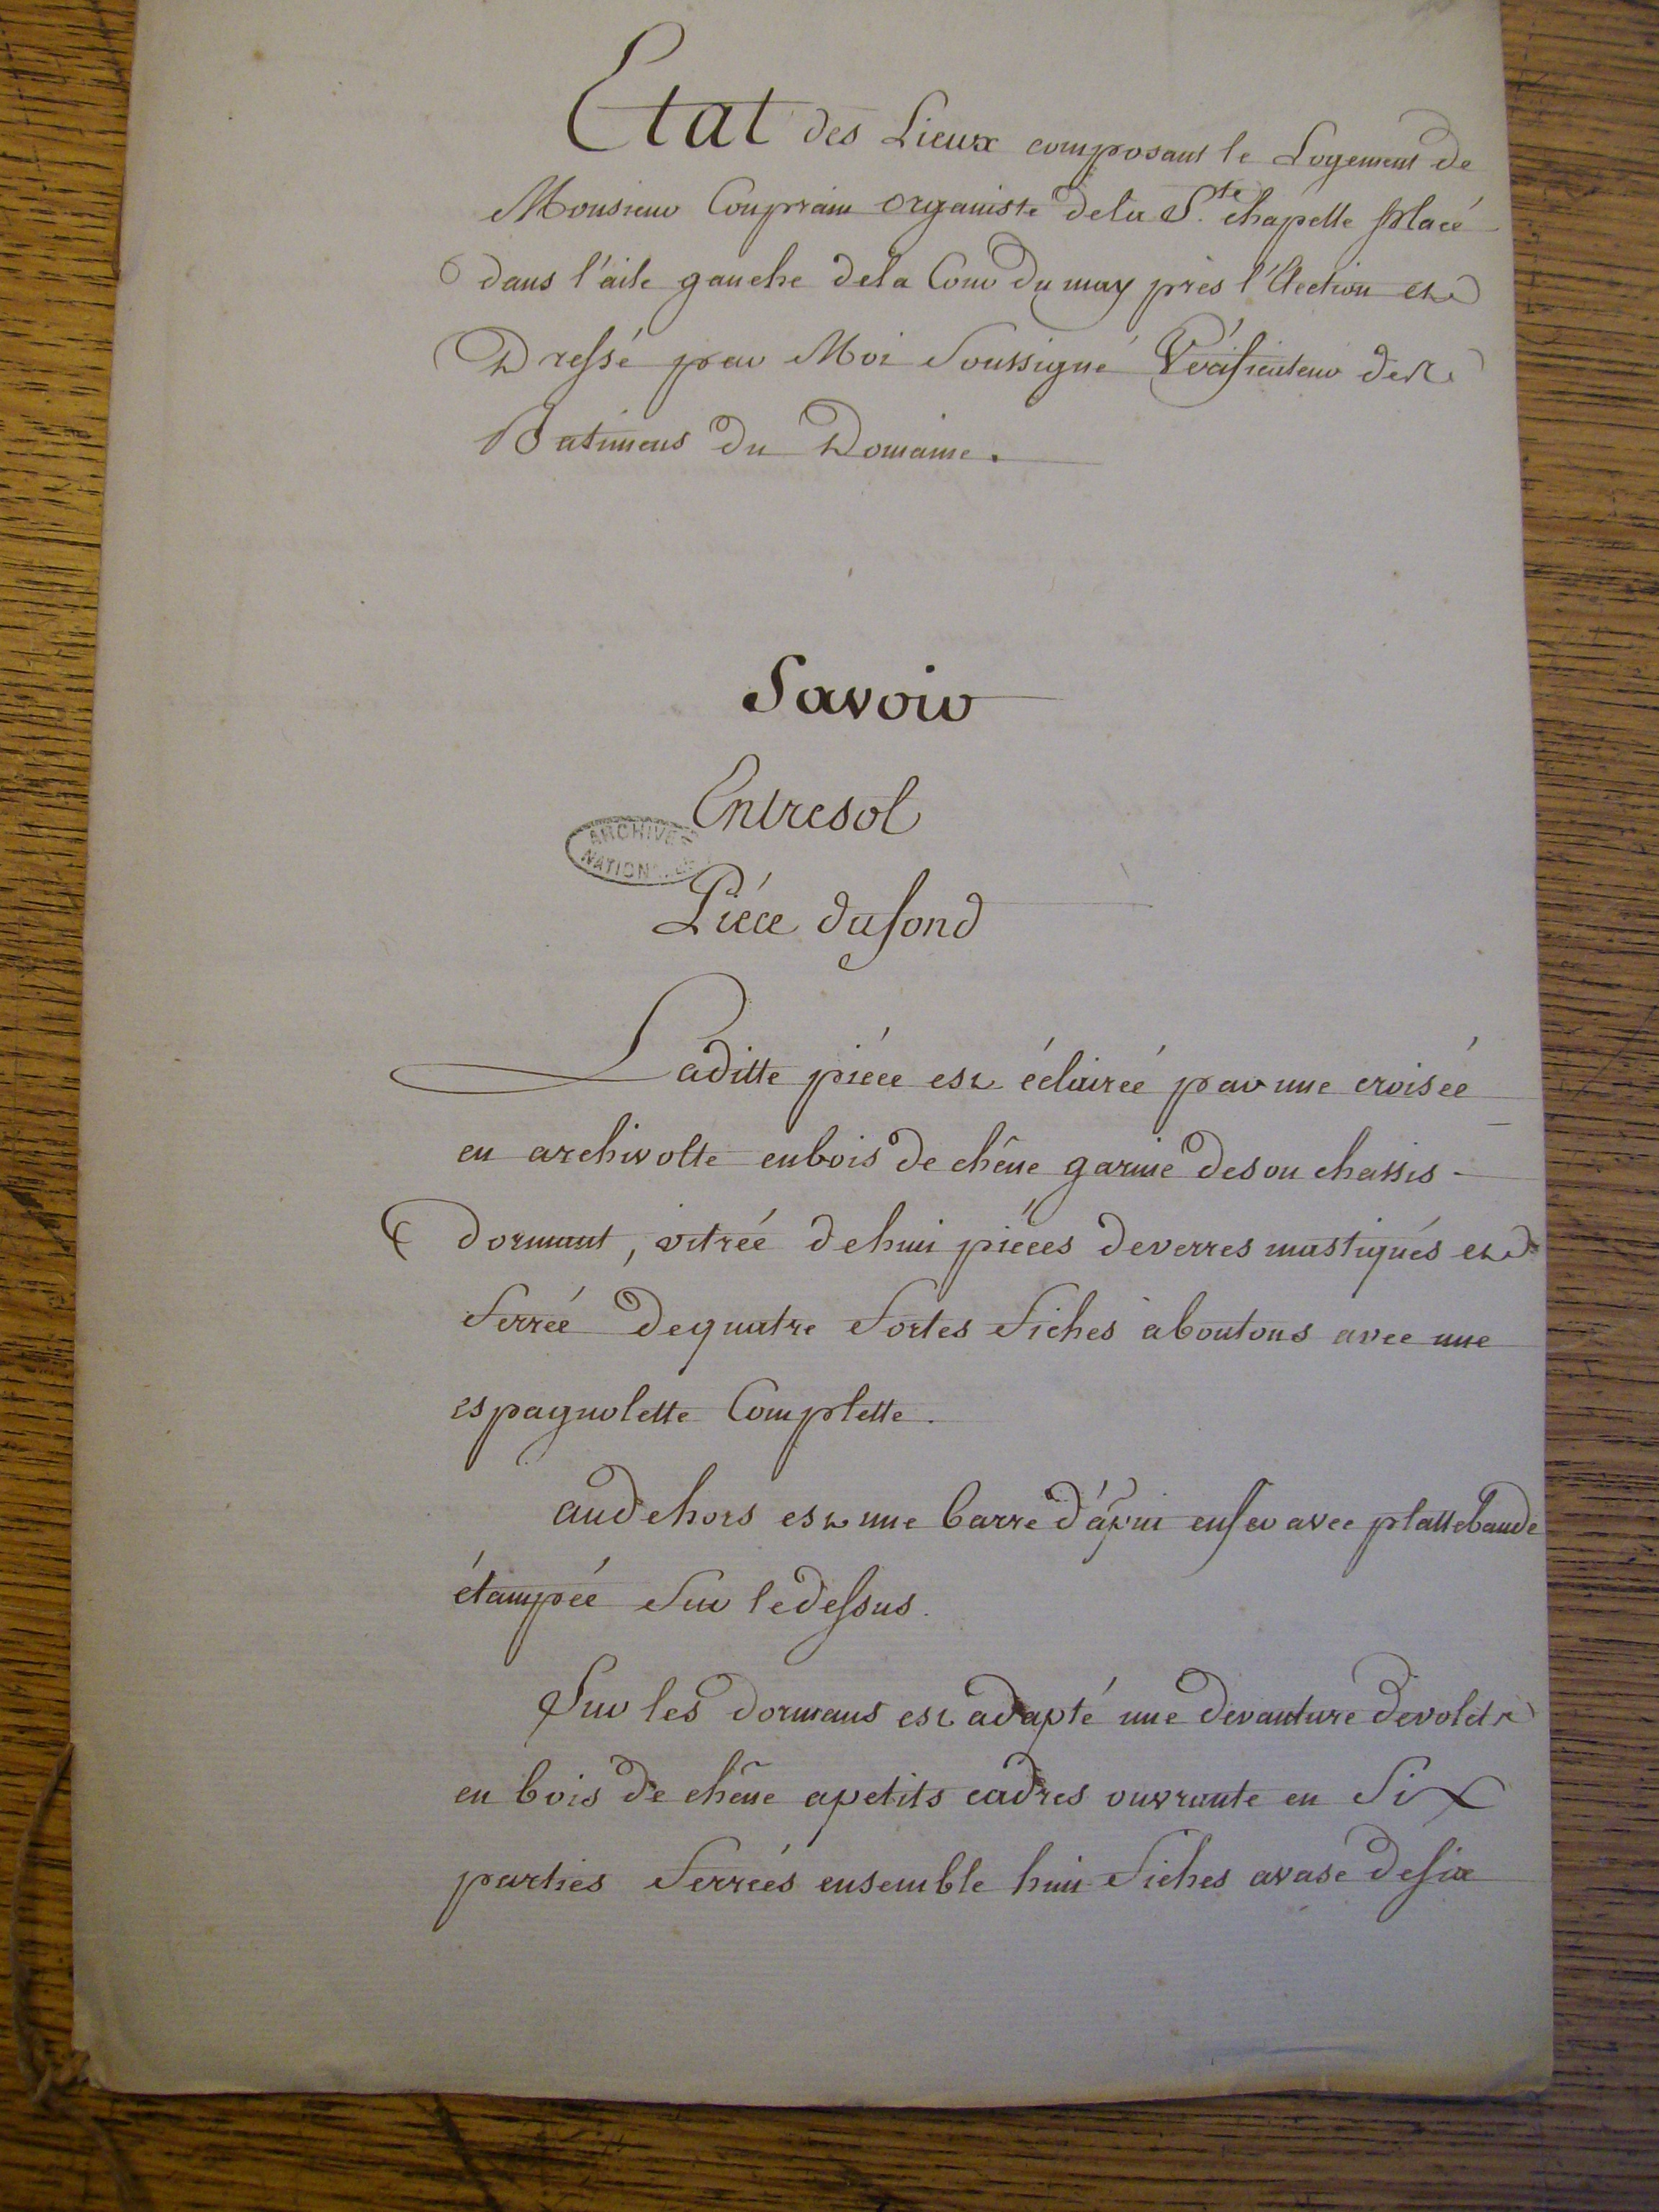 Etat des Lieux composant le Logement de
Monsieur Couprain organiste dela S.te chapelle placé
dans l'aile gauche dela Cour du may près l'Election et
Dressé par Moi Soussigné Vérificateur des
Batimens du Domaine.
Savoir
Entresol
ARCHIVES
NATIONALES
Piéce du fond
Laditte piéce est éclairée par une croisée
en archivolte en bois de chêne garnie de son chassis
dormant, vitrée de huit piéces de verres mastiqués et
ferrée de quatre fortes fiches a boutons avec une
espagnolette Complette.
au dehors est une barre d'apui en fer avec plattebande
étampée sur le dessus.
Sur les dormans est adapté une devanture de volets
en bois de chêne a petits cadres ouvrante en Six
parties ferrées ensemble huit fiches a vase de six